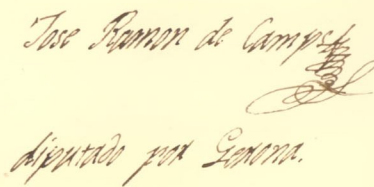 Jose Ramon de Camps
diputado por Gerona.